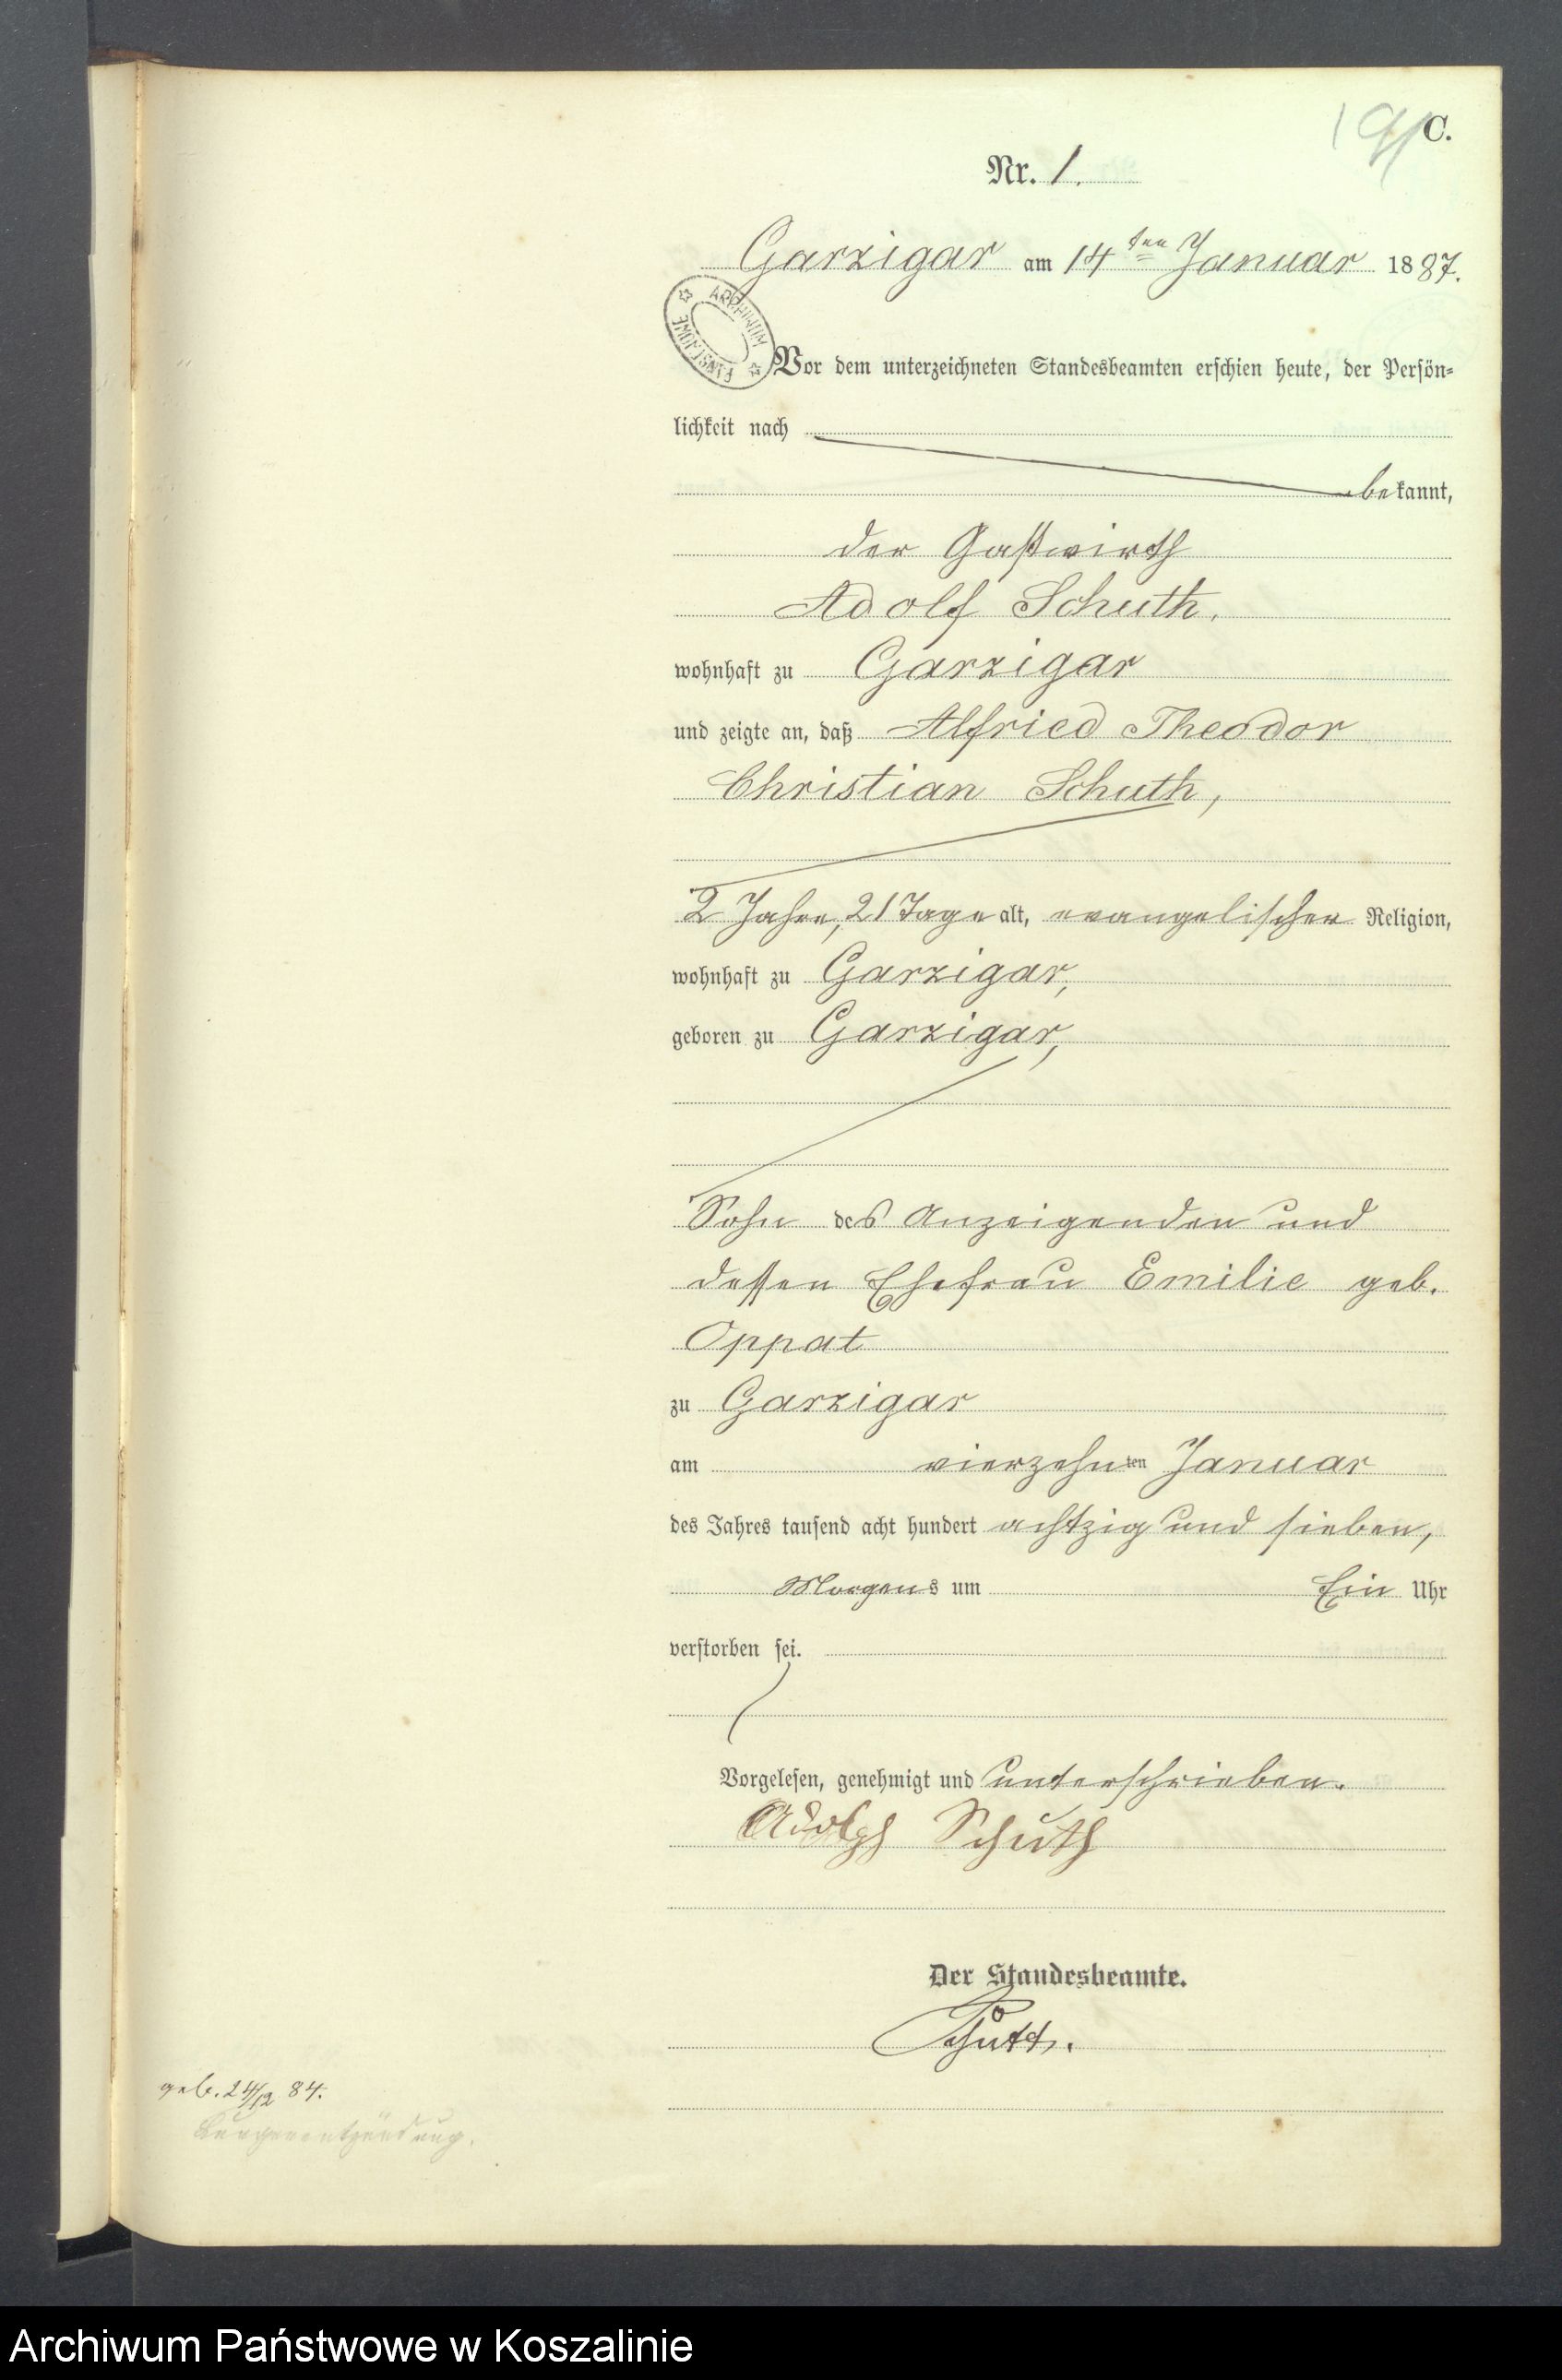 C.
Nr. 1.
Garzigar am 14ten Januar 1887.
ARCHIWUM PAŃSTWOWE
Vor dem unterzeichneten Standesbeamten erschien heute, der Persön-
lichkeit nach
bekannt,
der Gastwirth
Adolf Schuth,
wohnhaft zu Garzigar
und zeigte an, daß Alfried Theodor
Christian Schuth,
2 Jahre, 21 Tage alt, evangelischer Religion,
wohnhaft zu Garzigar,
geboren zu Garzigar,
Sohn des Anzeigenden und
dessen Ehefrau Emilie geb.
Oppat
zu Garzigar
am vierzehnten Januar
des Jahres tausend acht hundert achtzig und sieben,
Morgens um Ein Uhr
verstorben sei.
Vorgelesen, genehmigt und unterschrieben.
Adolph Schuth
Der Standesbeamte.
geb. 24/12 84.
Lungenentzündung.
Archiwum Państwowe w Koszalinie